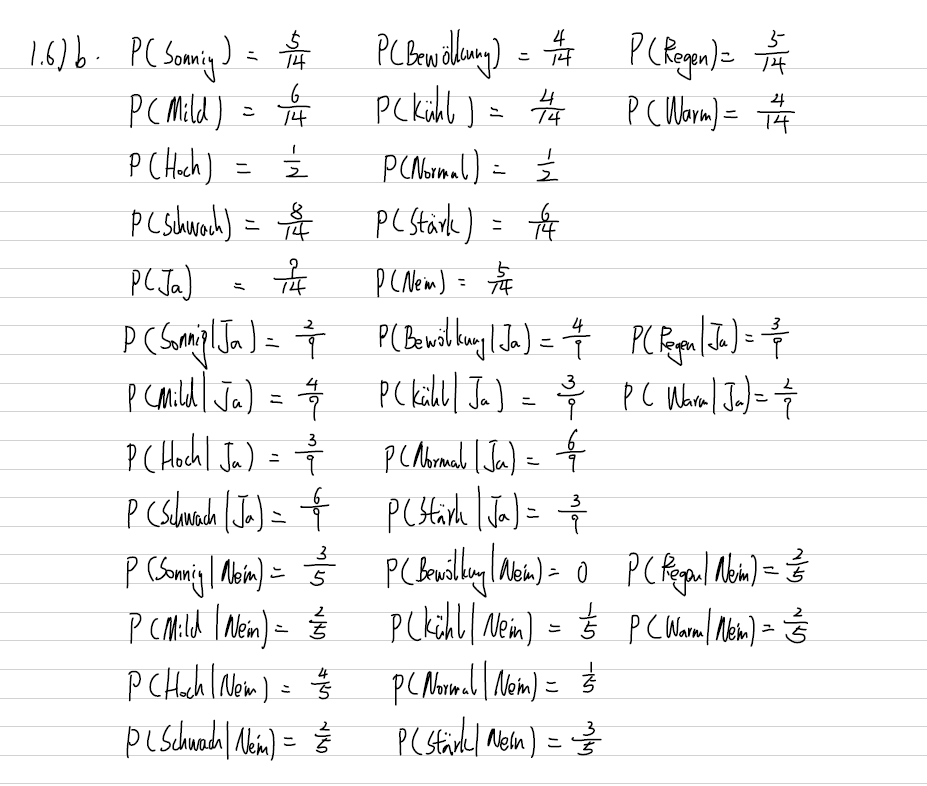 1.6) b. P(Sonnig) = 5/14 P(Bewölkung) = 4/14 P(Regen) = 5/14
P(Mild) = 6/14 P(Kühl) = 4/14 P(Warm) = 4/14
P(Hoch) = 1/2 P(Normal) = 1/2
P(Schwach) = 8/14 P(Stärk) = 6/14
P(Ja) = 9/14 P(Nein) = 5/14
P(Sonnig|Ja) = 2/9 P(Bewölkung|Ja) = 4/9 P(Regen|Ja) = 3/9
P(Mild|Ja) = 4/9 P(Kühl|Ja) = 3/9 P(Warm|Ja) = 2/9
P(Hoch|Ja) = 3/9 P(Normal|Ja) = 6/9
P(Schwach|Ja) = 6/9 P(Stärk|Ja) = 3/9
P(Sonnig|Nein) = 3/5 P(Bewölkung|Nein) = 0 P(Regen|Nein) = 2/5
P(Mild|Nein) = 2/5 P(Kühl|Nein) = 1/5 P(Warm|Nein) = 2/5
P(Hoch|Nein) = 4/5 P(Normal|Nein) = 1/5
P(Schwach|Nein) = 2/5 P(Stärk|Nein) = 3/5